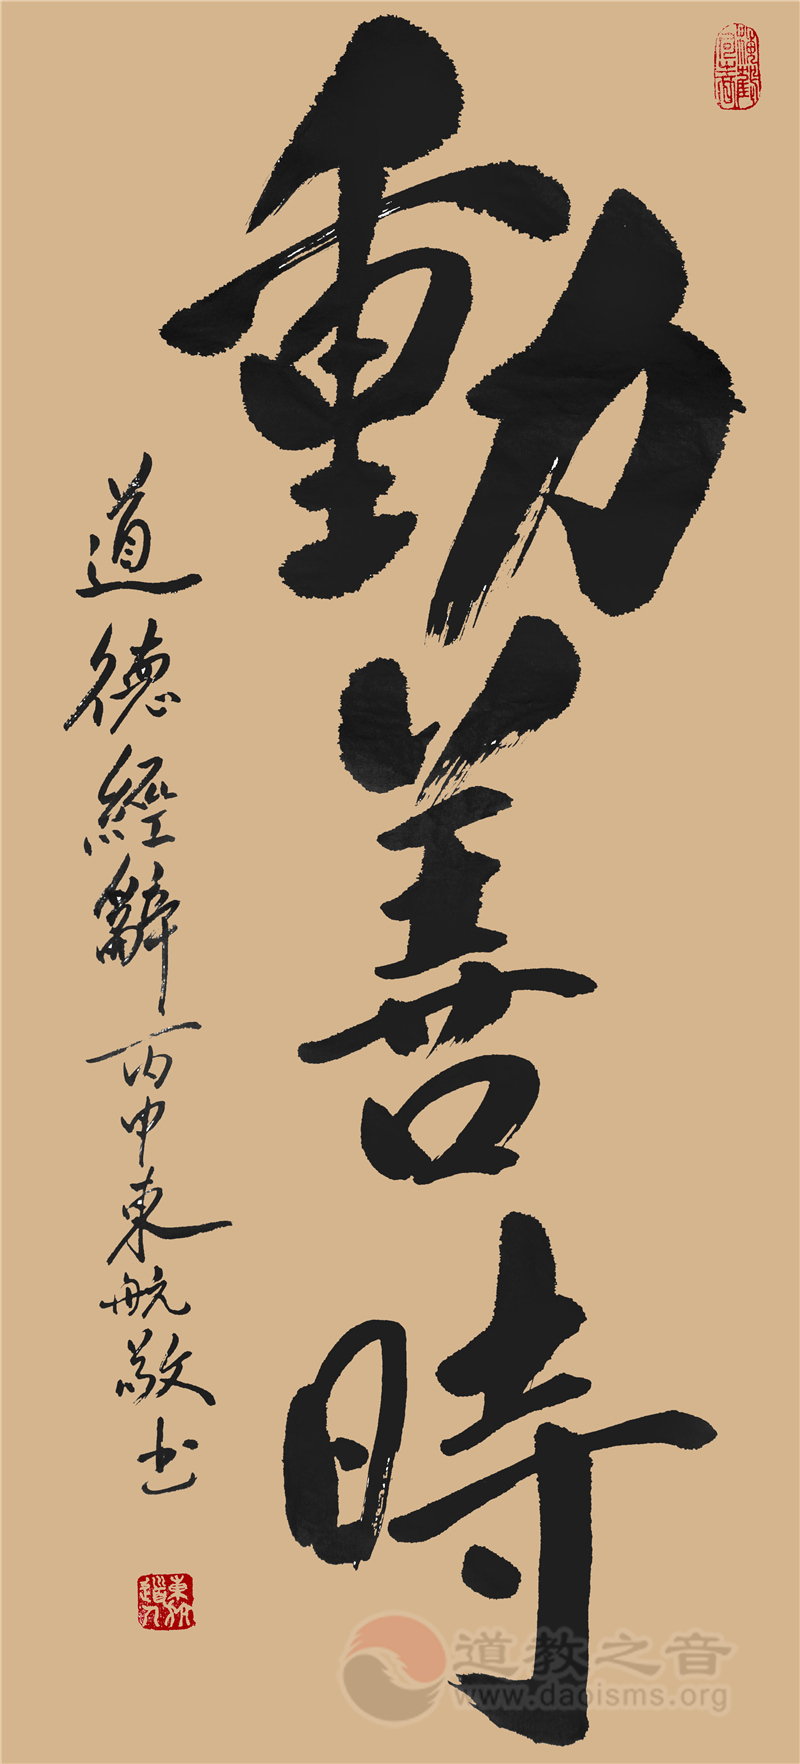 動善時
道德經辭丙申東航敬书
道教之音
www.daoisms.org